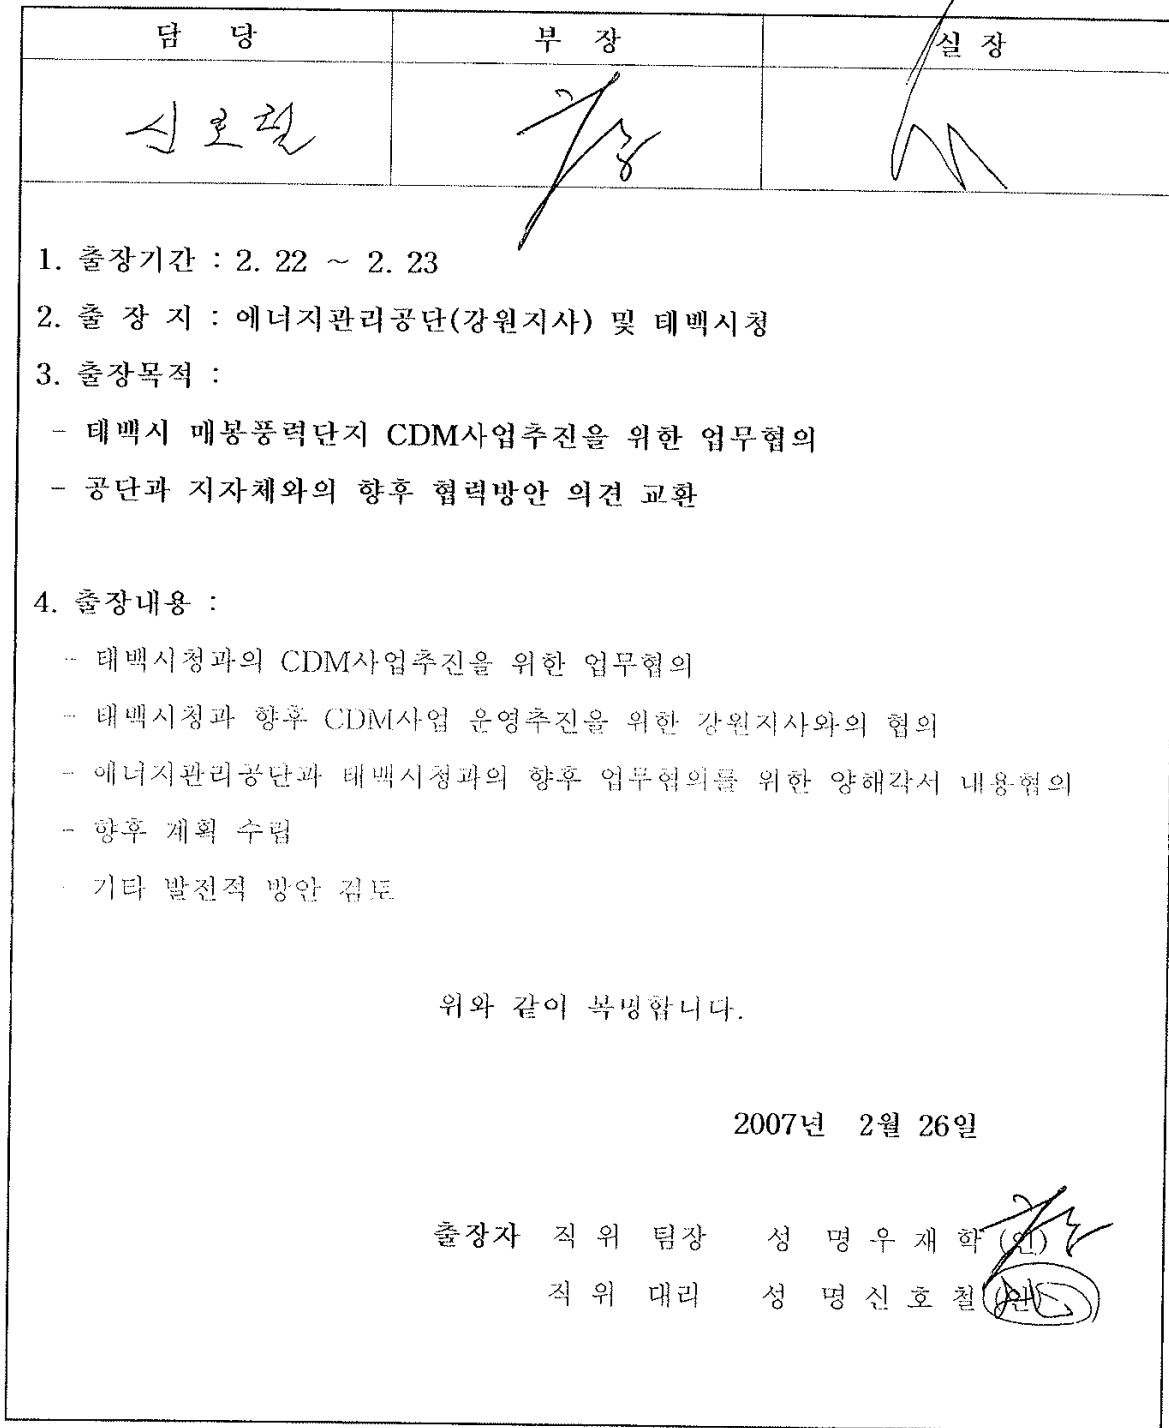 담 당 부 장 실 장
신호철
1. 출장기간 : 2. 22 ~ 2. 23
2. 출 장 지 : 에너지관리공단(강원지사) 및 태백시청
3. 출장목적 :
- 태백시 매봉풍력단지 CDM사업추진을 위한 업무협의
- 공단과 지자체와의 향후 협력방안 의견 교환
4. 출장내용 :
- 태백시청과의 CDM사업추진을 위한 업무협의
- 태백시청과 향후 CDM사업 운영추진을 위한 강원지사와의 협의
- 에너지관리공단과 태백시청과의 향후 업무협의를 위한 양해각서 내용협의
- 향후 계획 수립
- 기타 발전적 방안 검토
위와 같이 복명합니다.
2007년 2월 26일
출장자 직 위 팀장 성 명 우 재 학 (인)
직 위 대리 성 명 신 호 철 (인)